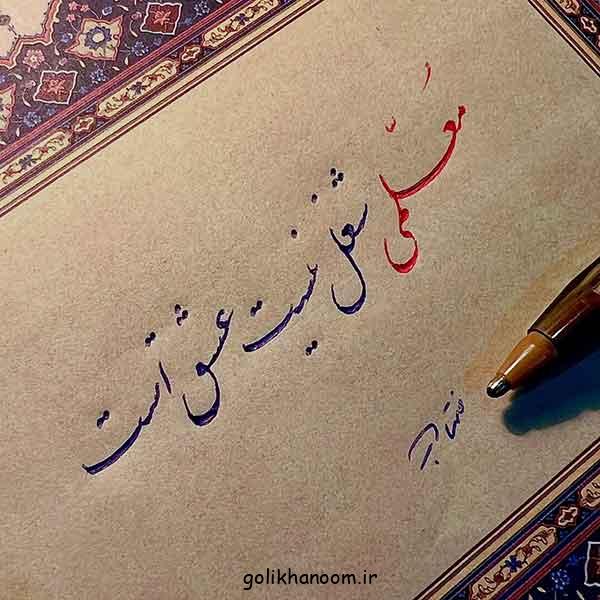 معلّمی شغل نیست عشق است
golikhanoom.ir